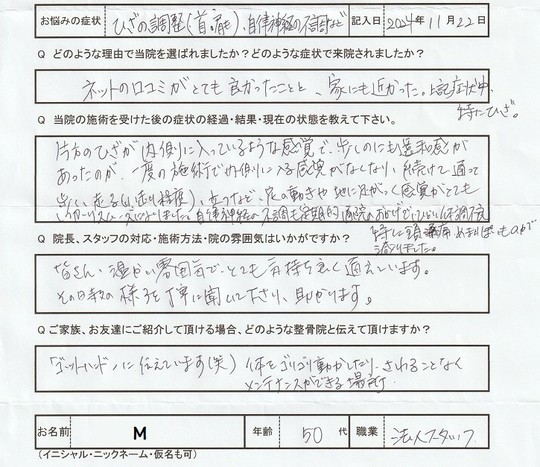 お悩みの症状 ひざの調整(首・肩)、自律神経の不調など 記入日 2024年11月22日
Q どのような理由で当院を選ばれましたか？どのような症状で来院されましたか？
ネットの口コミがとても良かったことと、家にも近かった。上記症状中、
特にひざ。
Q 当院の施術を受けた後の症状の経過・結果・現在の状態を教えて下さい。
片方のひざが内側に入っているような感覚で、歩くのにも違和感が
あったのが、一度の施術で内側に入る感覚がなくなり、続けて通って
歩く、走る(小走り程度)、立つなど、足の動きや地に足がつく感覚がとても
スムーズになりました。自律神経の不調も定期的
特に頭痛
Q 院長、スタッフの対応・施術方法・院の雰囲気はいかがですか？
皆さん、温かい雰囲気で、とても気持ち良く通えています。
その時々の様子を丁寧に聞いて下さり、助かります。
Q ご家族、お友達にご紹介して頂ける場合、どのような整骨院と伝えて頂けますか？
「ゴッドハンド」と伝えています(笑) 体をゴリゴリ動かしたり、さわることなく
メンテナンスができる場所
お名前 M 年齢 50代 職業 法人スタッフ
(イニシャル・ニックネーム・仮名も可)